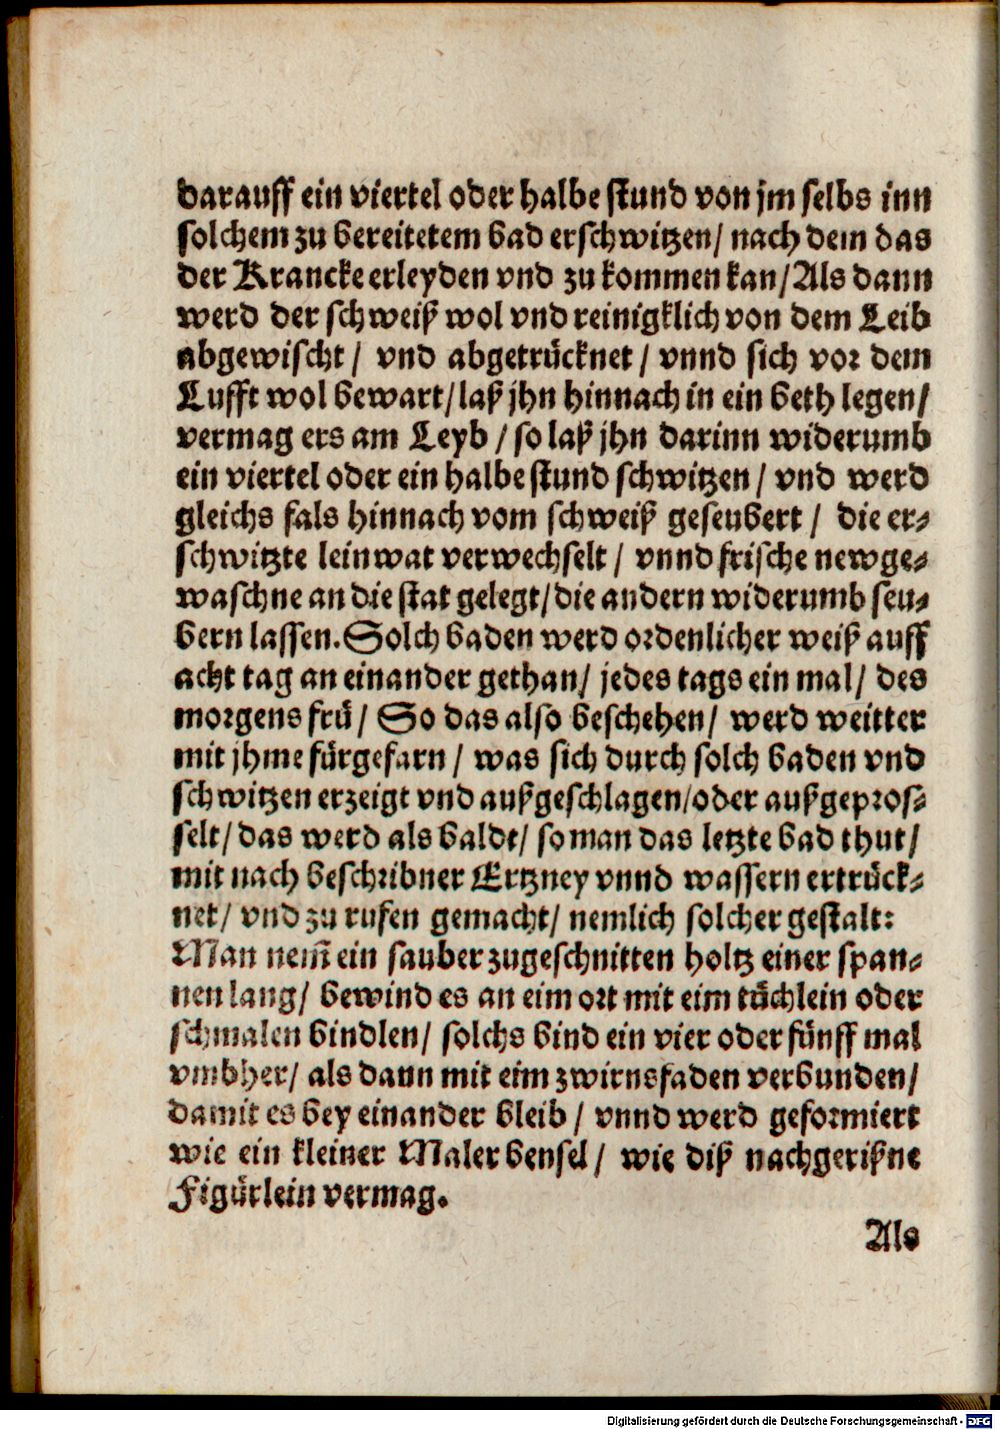 darauff ein viertel oder halbe stund von jm selbs inn
solchem zu bereitetem bad erschwitzen/ nach dem das
der Krancke erleyden vnd zu kommen kan/ Als dann
werd der schweiß wol vnd reinigklich von dem Leib
abgewischt/ vnd abgetrücknet/ vnnd sich vor dem
Lufft wol bewart/ laß jhn hinnach in ein beth legen/
vermag ers am Leyb / so laß jhn darinn widerumb
ein viertel oder ein halbe stund schwitzen/ vnd werd
gleichs fals hinnach vom schweiß geseubert/ die er⸗
schwitzte leinwat verwechselt/ vnnd frische newge⸗
waschne an die stat gelegt/ die andern widerumb seu⸗
bern lassen. Solch baden werd ordenlicher weiß auff
acht tag an einander gethan/ jedes tags ein mal/ des
morgens frü/ So das also beschehen/ werd weitter
mit jhme fürgefarn/ was sich durch solch baden vnd
schwitzen erzeigt vnd außgeschlagen/ oder außgepros⸗
selt/ das werd als baldt/ so man das letzte bad thut/
mit nach beschribner Ertzney vnnd wassern ertrück⸗
net/ vnd zu rufen gemacht/ nemlich solcher gestalt:
Man nem̃ ein sauber zugeschnitten holtz einer span⸗
nen lang/ bewind es an eim ort mit eim tüchlein oder
schmalen bindlen/ solchs bind ein vier oder fünff mal
vmbher/ als dann mit eim zwirnsfaden verbunden/
damit es bey einander bleib/ vnnd werd geformiert
wie ein kleiner Maler bensel/ wie diß nachgerißne
Figürlein vermag.
Als
Digitalisierung gefördert durch die Deutsche Forschungsgemeinschaft - DFG